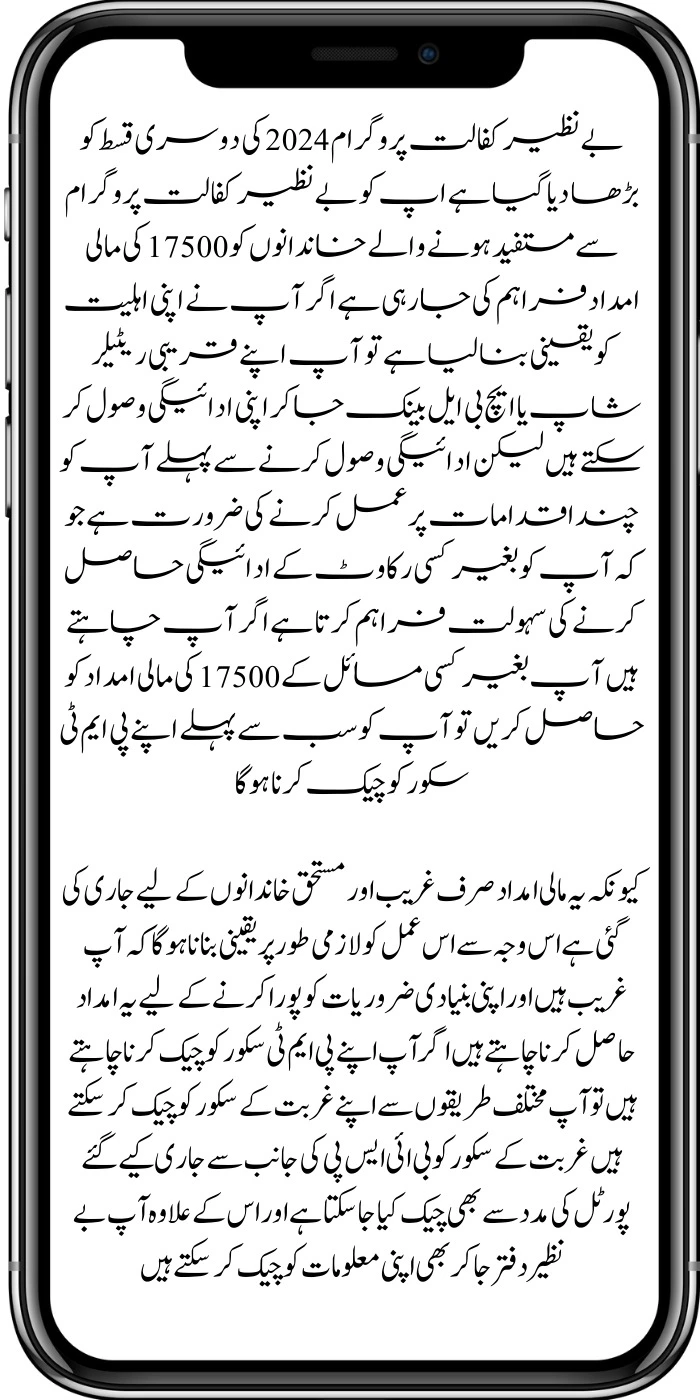 بے نظیر کفالت پروگرام 2024 کی دوسری قسط کو
بڑھا دیا گیا ہے اپ کو بے نظیر کفالت پروگرام
سے مستفید ہونے والے خاندانوں کو 17500 کی مالی
امداد فراہم کی جا رہی ہے اگر آپ نے اپنی اہلیت
کو یقینی بنا لیا ہے تو آپ اپنے قریبی ریٹیلر
شاپ یا ایچ بی ایل بینک جا کر اپنی ادائیگی وصول کر
سکتے ہیں لیکن ادائیگی وصول کرنے سے پہلے آپ کو
چند اقدامات پر عمل کرنے کی ضرورت ہے جو
کہ آپ کو بغیر کسی رکاوٹ کے ادائیگی حاصل
کرنے کی سہولت فراہم کرتا ہے اگر آپ چاہتے
ہیں آپ بغیر کسی مسائل کے 17500 کی مالی امداد کو
حاصل کریں تو آپ کو سب سے پہلے اپنے پی ایم ٹی
سکور کو چیک کرنا ہوگا
کیونکہ یہ مالی امداد صرف غریب اور مستحق خاندانوں کے لیے جاری کی
گئی ہے اس وجہ سے اس عمل کو لازمی طور پر یقینی بنانا ہوگا کہ آپ
غریب ہیں اور اپنی بنیادی ضروریات کو پورا کرنے کے لیے یہ امداد
حاصل کرنا چاہتے ہیں اگر آپ اپنے پی ایم ٹی سکور کو چیک کرنا چاہتے
ہیں تو آپ مختلف طریقوں سے اپنے غربت کے سکور کو چیک کر سکتے
ہیں غربت کے سکور کو بی ائی ایس پی کی جانب سے جاری کیے گئے
پورٹل کی مدد سے بھی چیک کیا جا سکتا ہے اور اس کے علاوہ آپ بے
نظیر دفتر جا کر بھی اپنی معلومات کو چیک کر سکتے ہیں